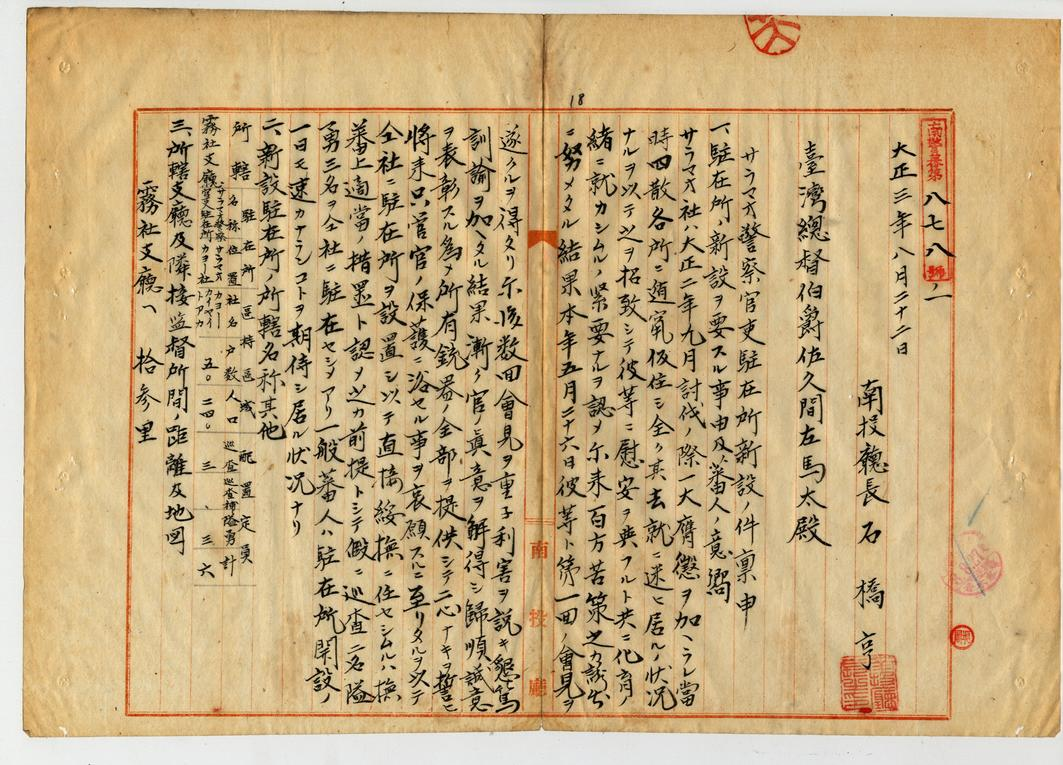 18
南警蕃第八七八號ノ一
大正三年八月二十二日
南投廳長石橋亨
臺灣總督伯爵佐久間左馬太殿
サラマオ警察官吏駐在所新設ノ件稟申
一、駐在所ノ新設ヲ要スル事由及蕃人ノ意嚮
サラマオ社ハ大正二年九月討伐ノ際一大膺懲ヲ加ヘラレ當
時四散各所ニ遁竄仮住シ全ク其去就ニ迷ヒ居ルノ状況
ナルヲ以テ之ヲ招致シテ彼等ニ慰安ヲ與フルト共ニ化育ノ
緒ニ就カシムルノ緊要ナルヲ認メ尓来百方苦策之カ誘出
ニ努メタル結果本年五月二十六日彼等ト第一回ノ會見ヲ
遂クルヲ得タリ尓後数回會見ヲ重子利害ヲ説キ懇篤
訓諭ヲ加ヘタル結果漸ク官ノ眞意ヲ解得シ歸順誠意
ヲ表彰スル為メ所有銃器ノ全部ヲ提供シテ二心ナキヲ誓ヒ
将来只管官ノ保護ニ浴セル事ヲ哀願スルニ至リタルヲ以テ
仝社ニ駐在所ヲ設置シ以テ直接綏撫ニ任セシムルハ撫
蕃上適當ノ措置ト認メ之カ前提トシテ假ニ巡査二名隘
勇三名ヲ仝社ニ駐在セシメアリ一般蕃人ハ駐在所開設ノ
一日モ速カナランコトヲ期待シ居ル状况ナリ
二、新設駐在所ノ所轄名称其他
所轄 駐在所 區持區域 配置定員
名称 位置 社名 戸数 人口 巡査 巡査補 隘勇 計
霧社支廳 サラマオ警察官吏駐在所 サラマオカヨー社 カヨー 五〇 二四〇 三 、 三 六
三、所轄支廳及隣接監督所間ノ距離及地図
霧社支廳ヘ 拾参里
南投廳